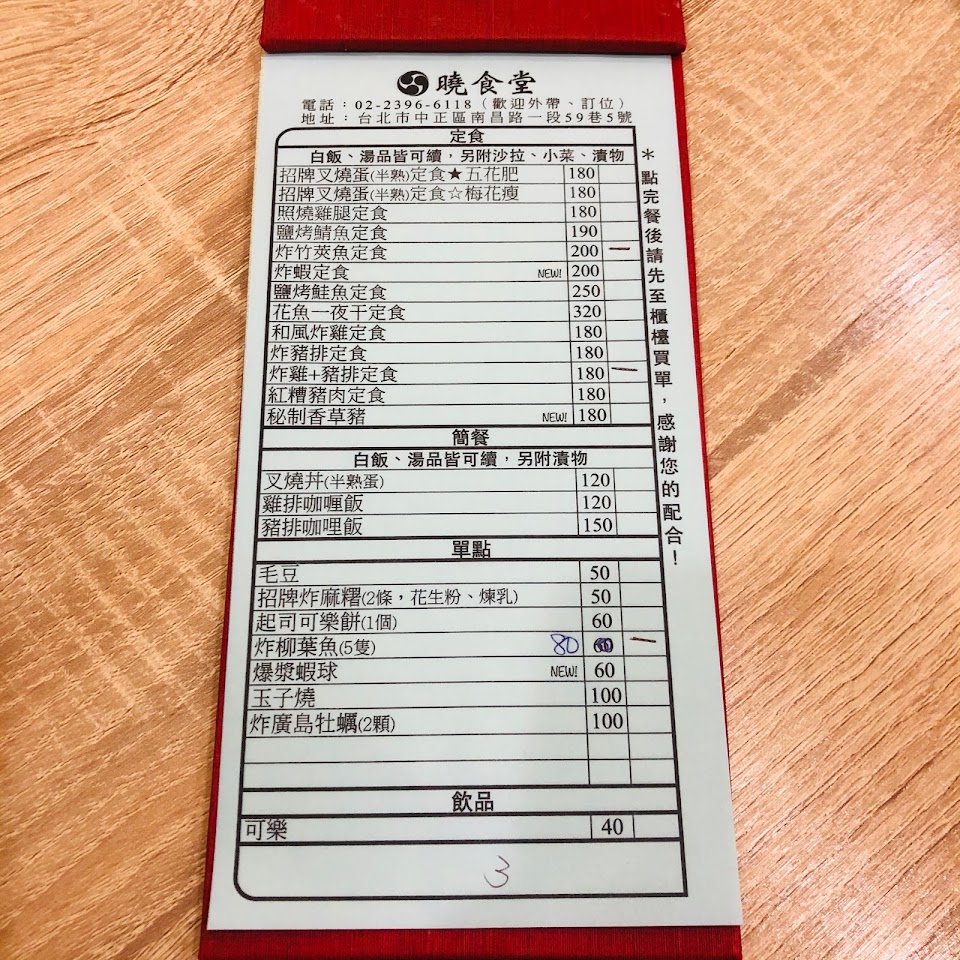 曉食堂
電話：02-2396-6118（歡迎外帶、訂位）
地址：台北市中正區南昌路一段59巷5號
定食
白飯、湯品皆可續，另附沙拉、小菜、漬物
招牌叉燒蛋(半熟)定食★五花肥 180
招牌叉燒蛋(半熟)定食☆梅花瘦 180
照燒雞腿定食 180
鹽烤鯖魚定食 190
炸竹莢魚定食 200 一
炸蝦定食 NEW! 200
鹽烤鮭魚定食 250
花魚一夜干定食 320
和風炸雞定食 180
炸豬排定食 180
炸雞+豬排定食 180 一
紅糟豬肉定食 180
秘制香草豬 NEW! 180
簡餐
白飯、湯品皆可續，另附漬物
叉燒丼(半熟蛋) 120
雞排咖喱飯 120
豬排咖哩飯 150
單點
毛豆 50
招牌炸麻糬(2條，花生粉、煉乳) 50
起司可樂餅(1個) 60
炸柳葉魚(5隻) 80 一
爆漿蝦球 NEW! 60
玉子燒 100
炸廣島牡蠣(2顆) 100
飲品
可樂 40
3
＊點完餐後請先至櫃檯買單，感謝您的配合！